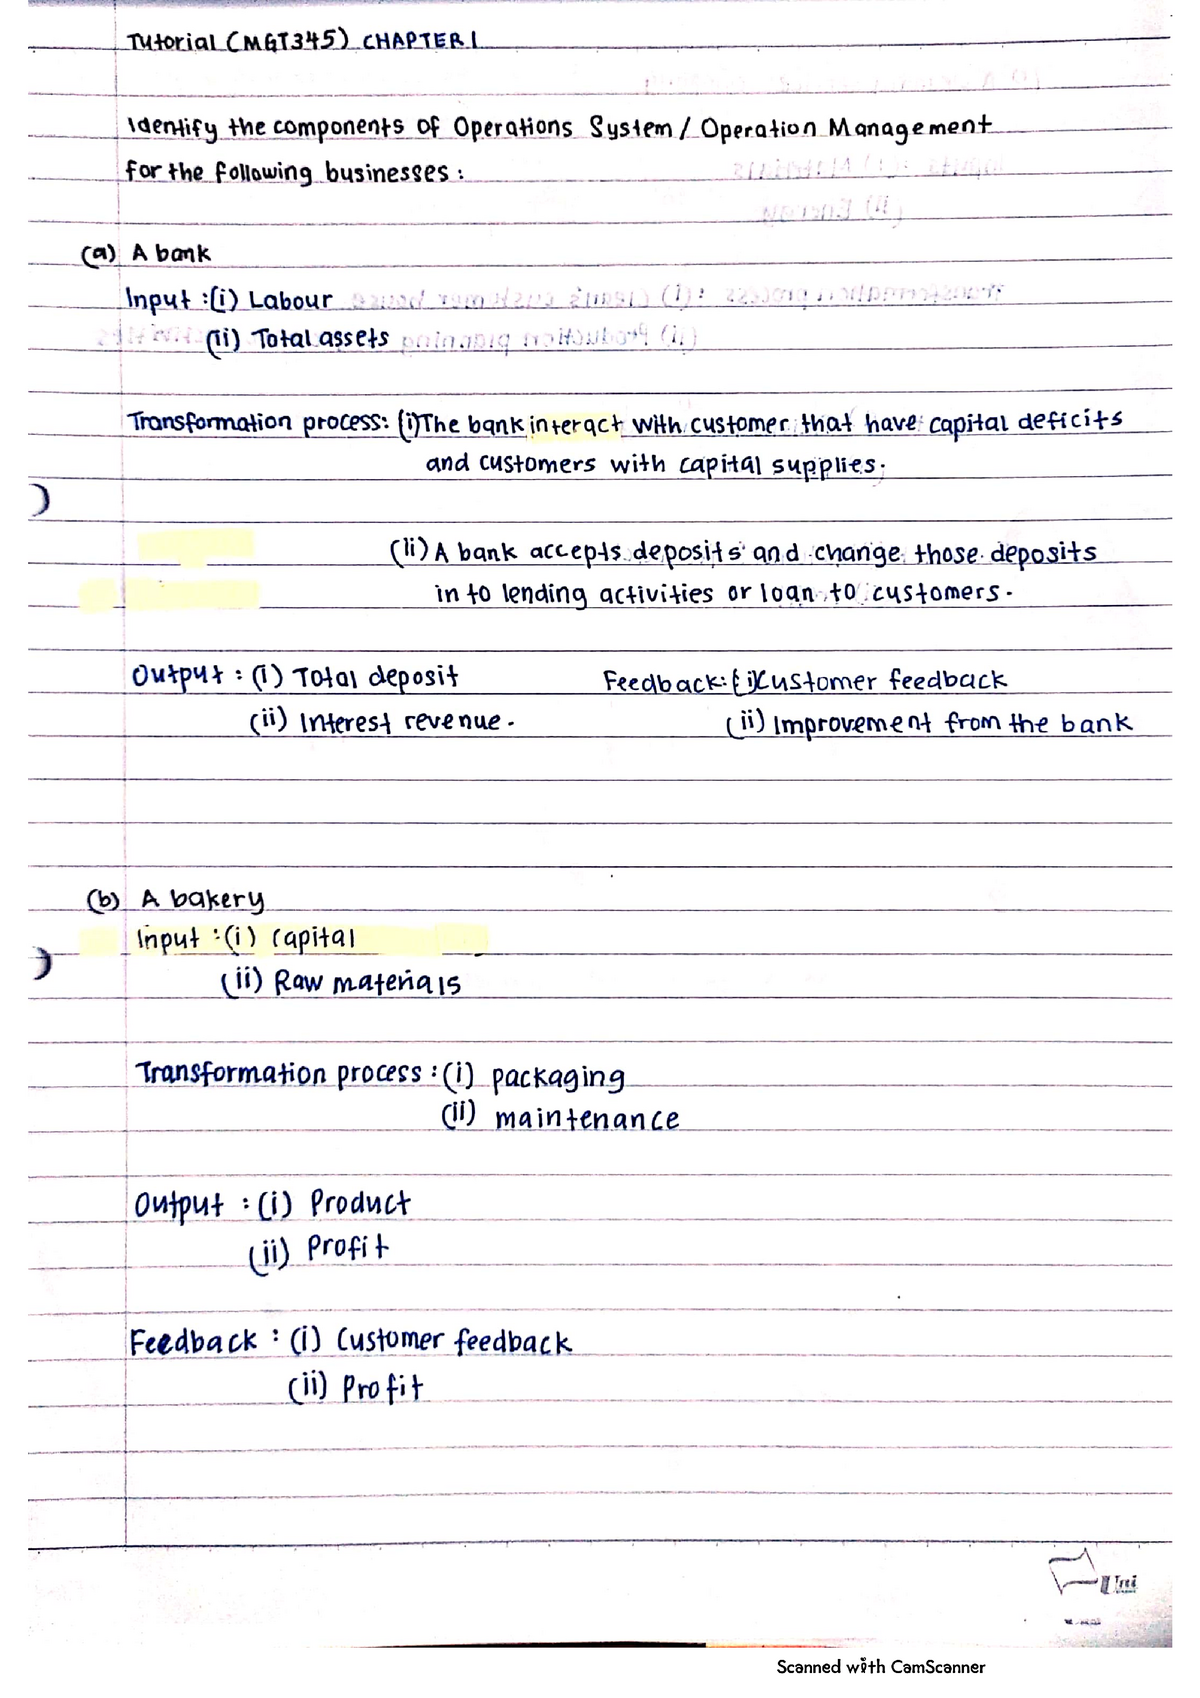 Tutorial (MGT345) CHAPTER 1
Identify the components of Operations System / Operation Management
for the following businesses :
(a) A bank
Input : (i) Labour
(ii) Total assets
Transformation process: (i) The bank interact with customer that have capital deficits
and customers with capital supplies.
(ii) A bank accepts deposits and change those deposits
in to lending activities or loan to customers.
Output : (i) Total deposit Feedback: (i) Customer feedback
(ii) Interest revenue. (ii) Improvement from the bank
(b) A bakery
Input : (i) Capital
(ii) Raw materials
Transformation process : (i) packaging
(ii) maintenance
Output : (i) Product
(ii) Profit
Feedback : (i) Customer feedback
(ii) Profit
Scanned with CamScanner